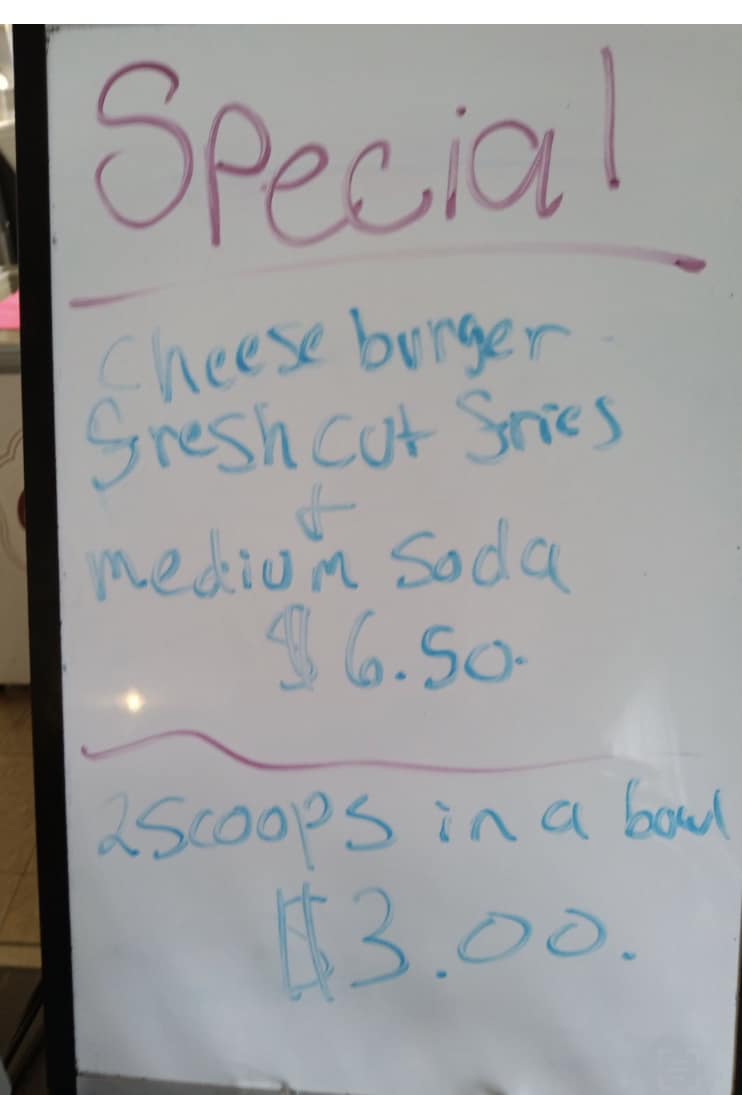 Special
Cheese burger
fresh cut fries
+
medium soda
$6.50.
2 Scoops in a bowl
$3.00.